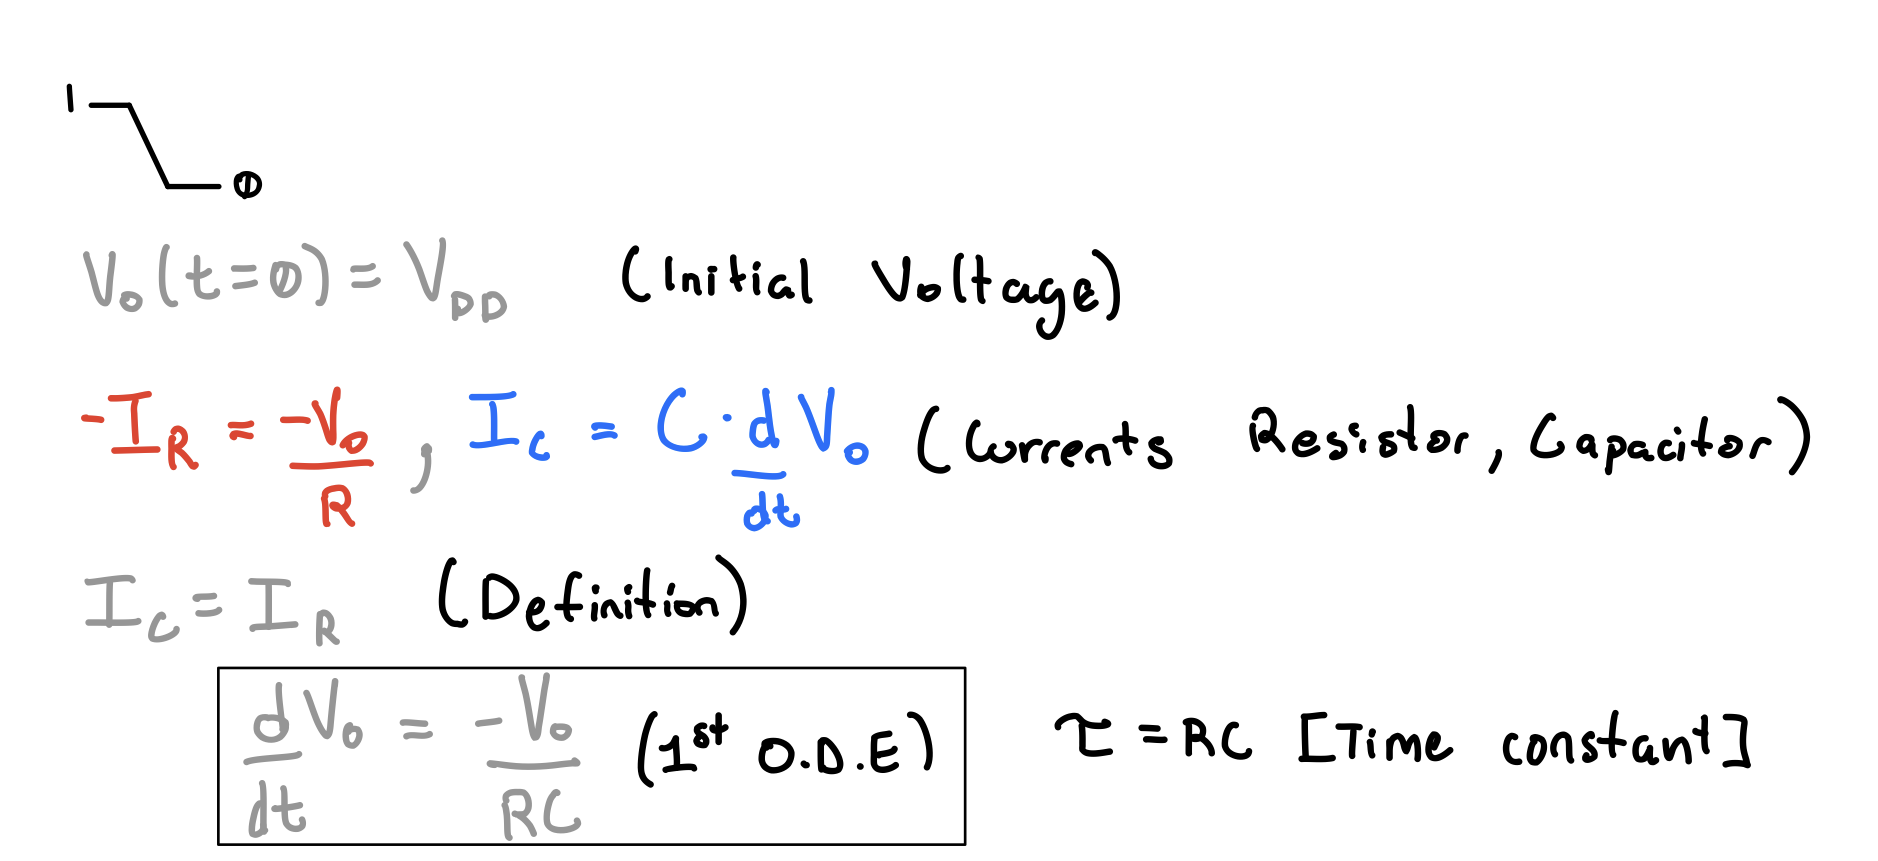 1
0
V₀(t=0) = V_DD (Initial Voltage)
-I_R = -V₀/R , I_C = C · d/dt V₀ (Currents Resistor, Capacitor)
I_C = I_R (Definition)
d/dt V₀ = -V₀/RC (1st O.D.E) τ = RC [Time constant]